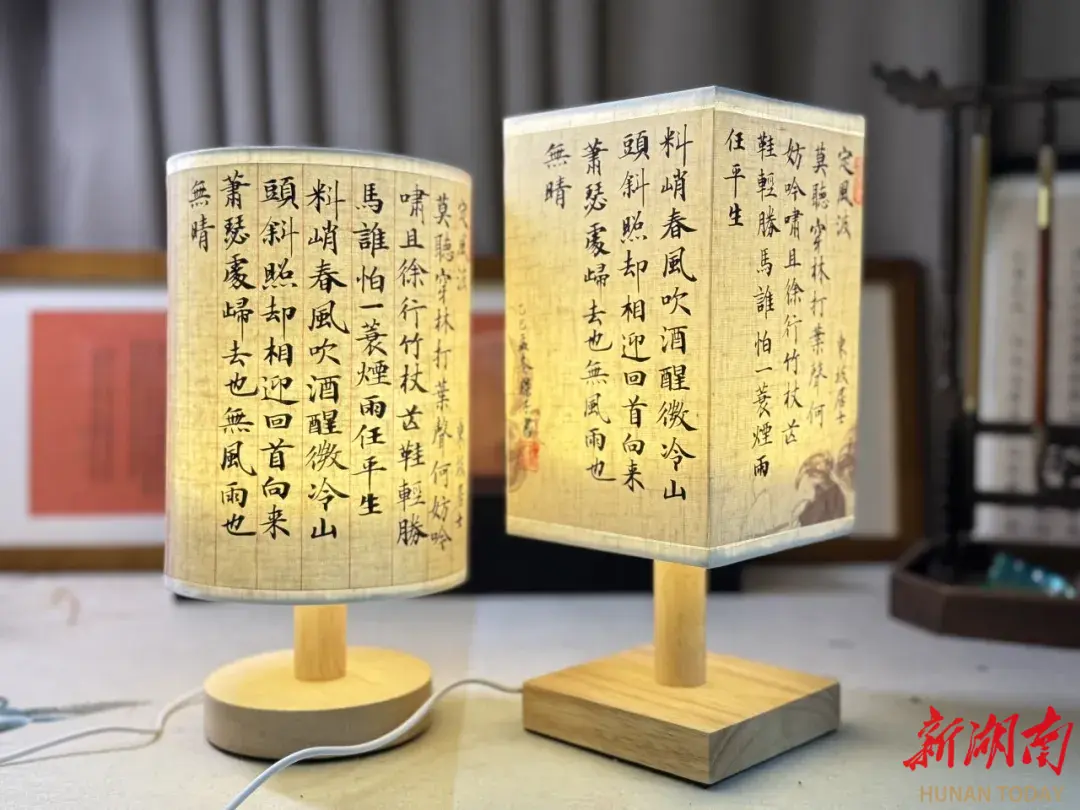 定風波 東坡居士
莫聽穿林打葉聲何妨吟
嘯且徐行竹杖芒鞋輕勝
馬誰怕一蓑煙雨任平生
料峭春風吹酒醒微冷山
頭斜照却相迎回首向来
蕭瑟處歸去也無風雨也
無晴
定風波 東坡居士
莫聽穿林打葉聲何
妨吟嘯且徐行竹杖芒
鞋輕勝馬誰怕一蓑煙雨
任平生
料峭春風吹酒醒微冷山
頭斜照却相迎回首向来
蕭瑟處歸去也無風雨也
無晴
新湖南
HUNAN TODAY